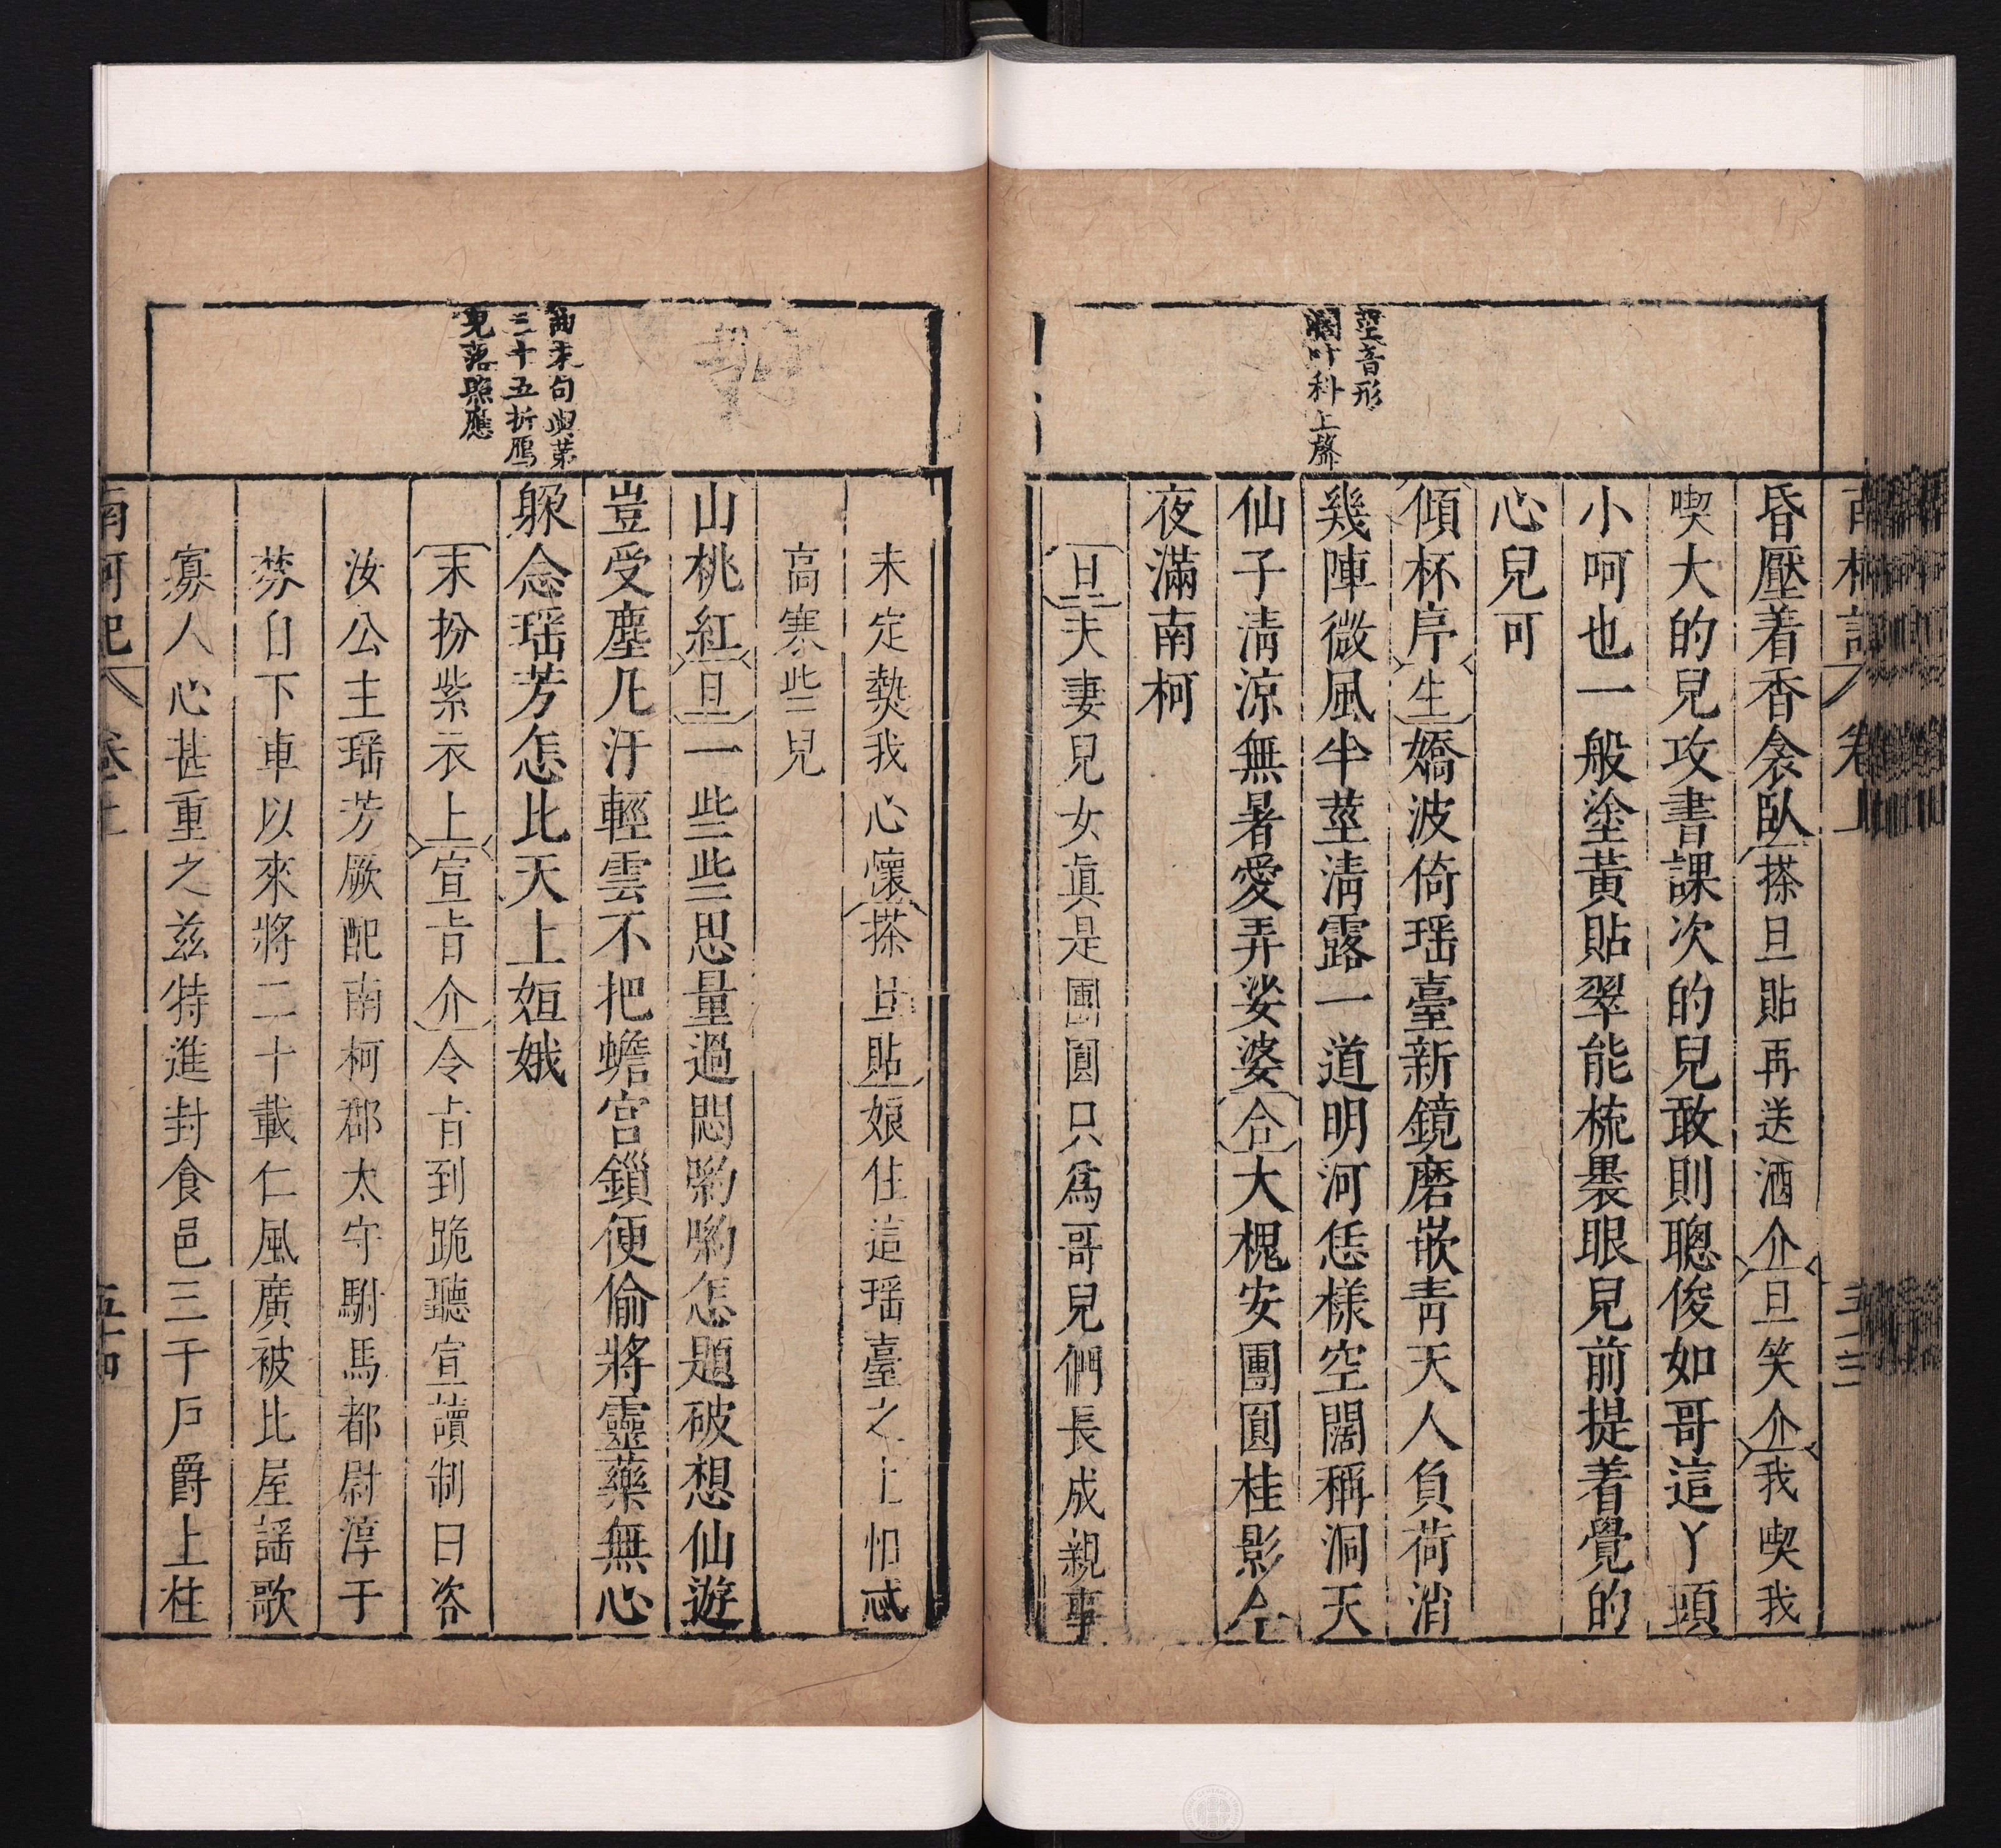 南柯記 卷上 五十三
莖音形
闊叶科上聲
昏壓着香衾臥搽旦貼再送酒介旦笑介我喫我
喫大的兒攻書課次的兒敢則聰俊如哥這丫頭
小呵也一般塗黃貼翠能梳裹眼見前提着覺的
心兒可
傾杯序生嬌波倚瑶臺新鏡磨嵌青天人負荷消
幾陣微風半莖清露一道明河恁樣空闊稱洞天
仙子清涼無暑愛弄娑婆合大槐安團圓桂影今
夜滿南柯
旦夫妻兒女眞是團圓只爲哥兒們長成親事
曲末句與第
三十五折鴈
兒落照應
未定熱我心懷搽旦貼娘住這瑶臺之上怕忒
高寒些兒
山桃紅旦一些些思量過悶喲喲怎題破想仙遊
豈受塵凡汙輕雲不把蟾宮鎖便偷將靈藥無心
躱念瑶芳怎比天上姮娥
末扮紫衣上宣旨介令旨到跪聽宣讀制曰咨
汝公主瑶芳厥配南柯郡太守駙馬都尉淳于
棼自下車以來將二十載仁風廣被比屋謡歌
寡人心甚重之兹特進封食邑三千戶爵上柱
南柯記 卷上 五十四